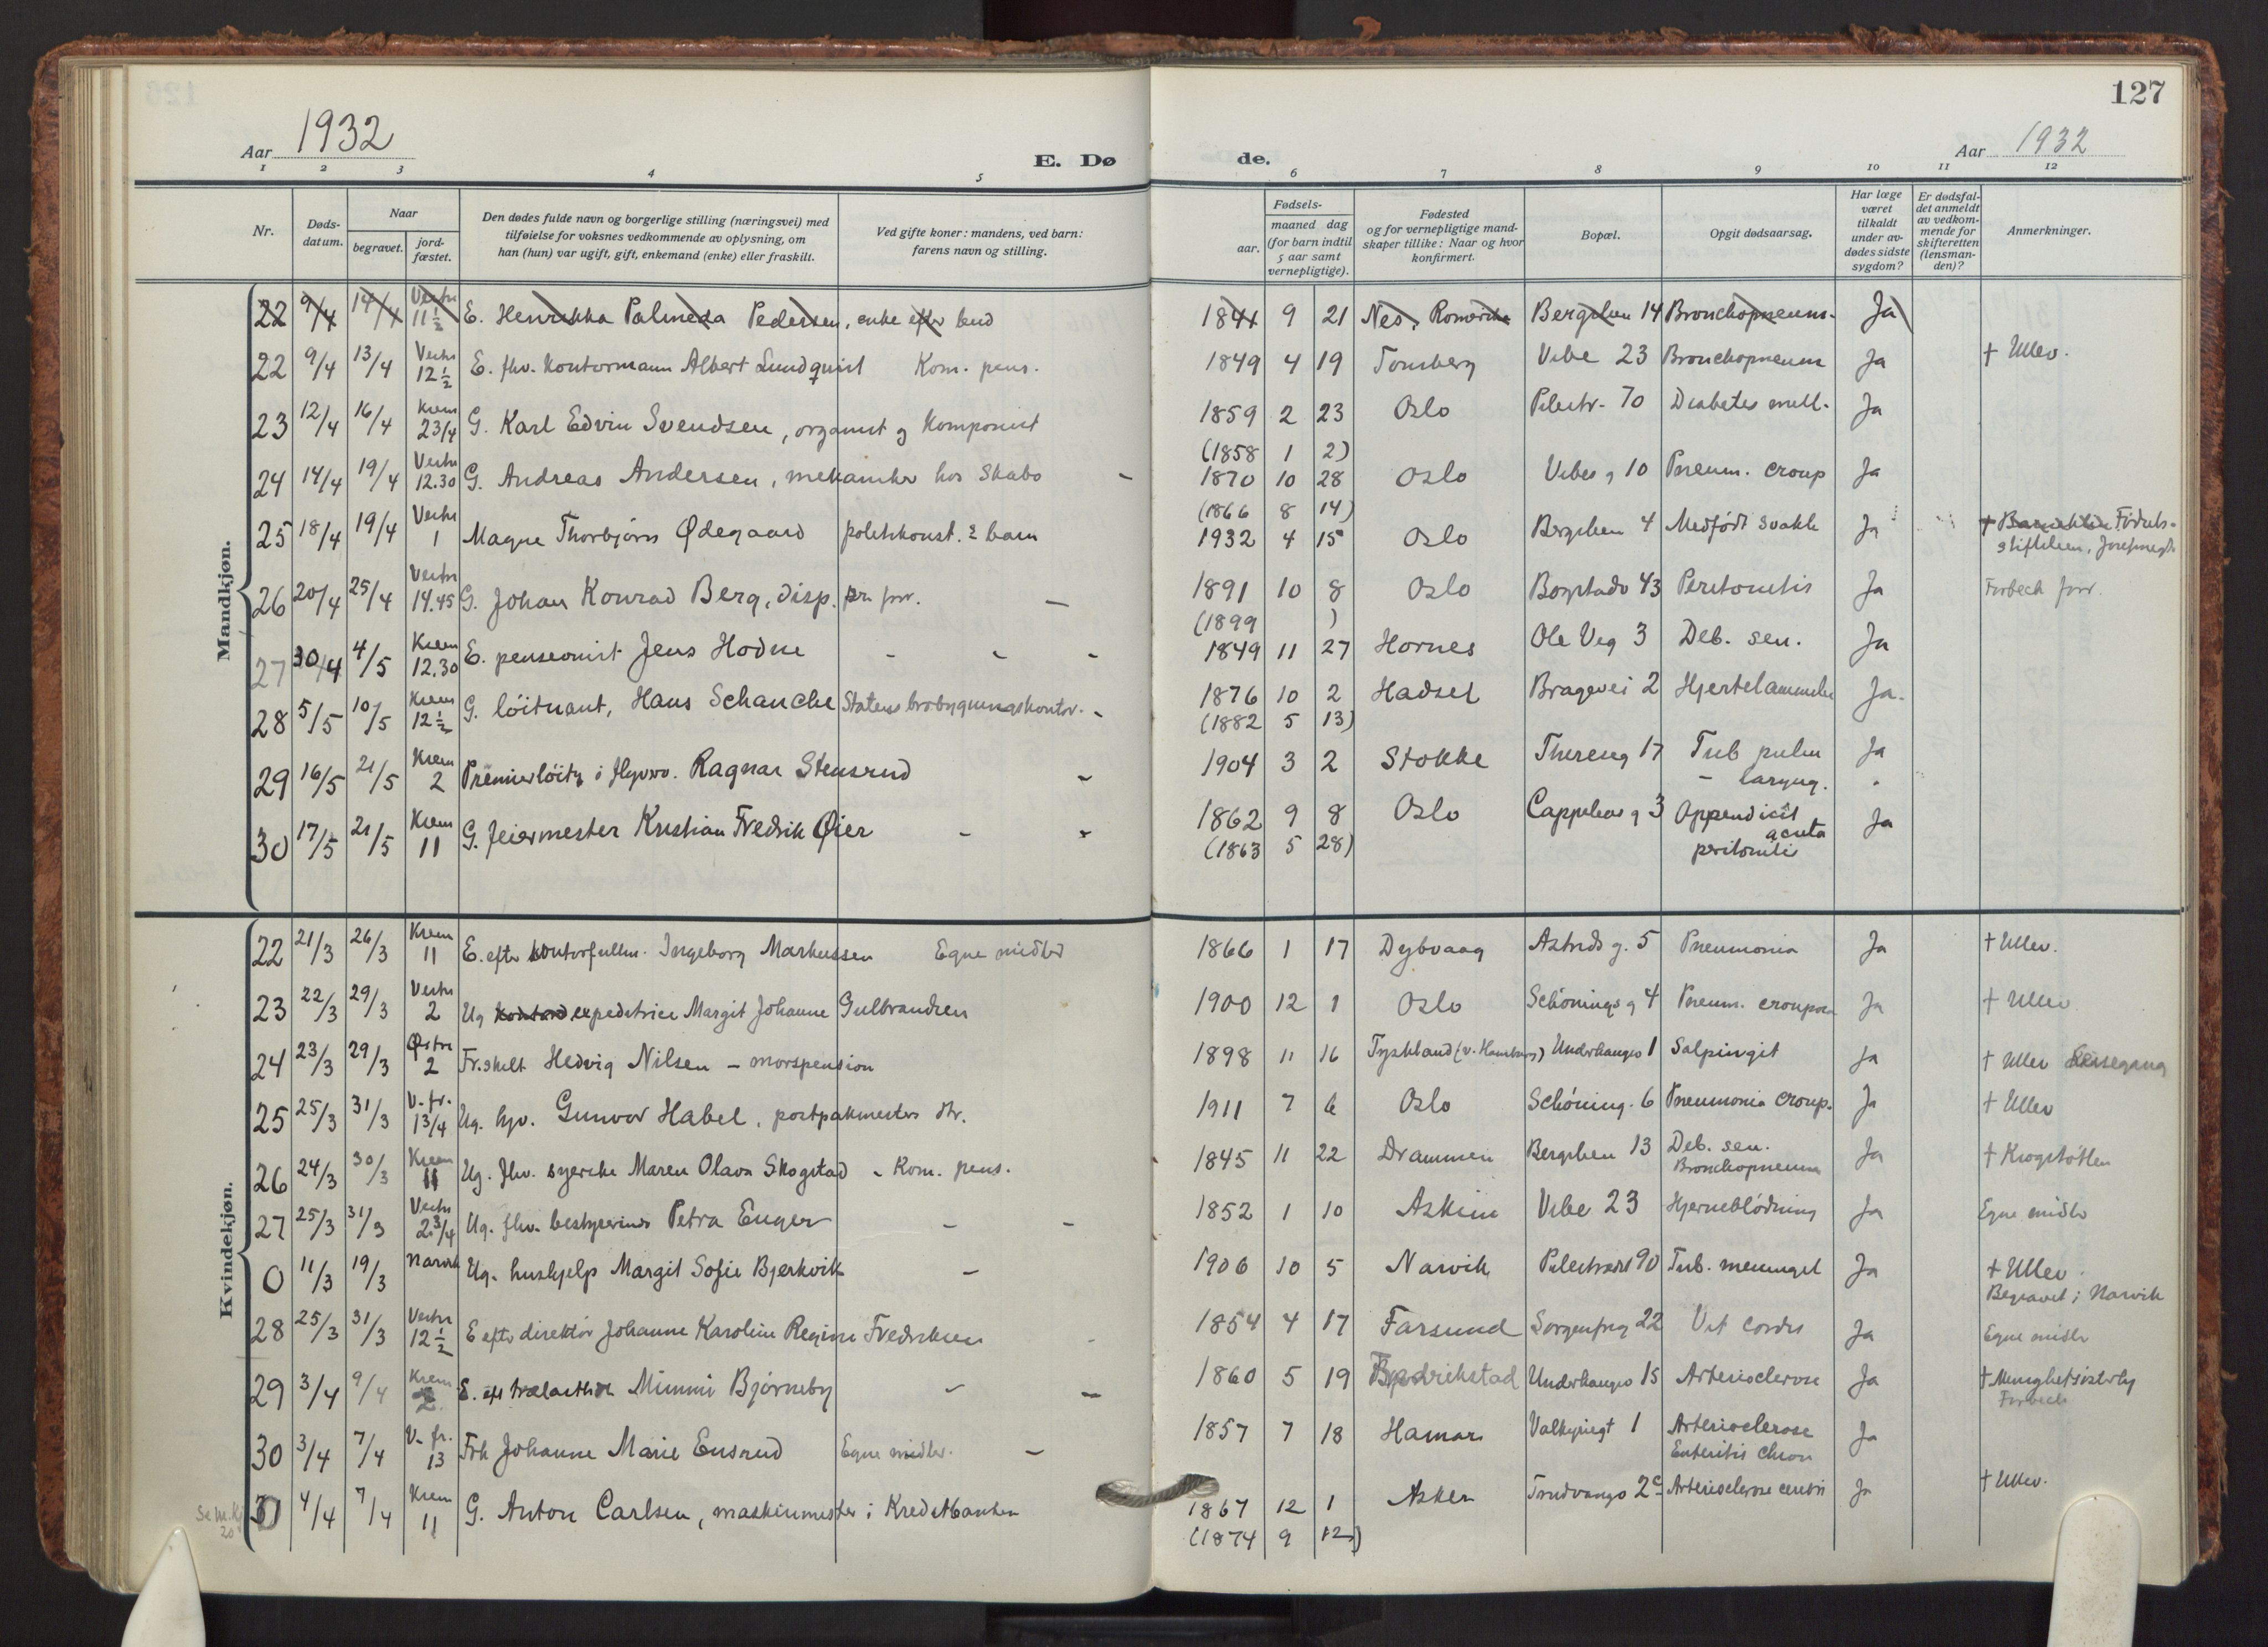 127
Aar 1932
E. Dø
de.
Aar 1932
1 2 3 4 5 6 7 8 9 10 11 12
Nr. Døds-datum. Naar begravet. jord-fæstet. Den dødes fulde navn og borgerlige stilling (næringsvei) med tilføielse for voksnes vedkommende av oplysning, om han (hun) var ugift, gift, enkemand (enke) eller fraskilt. Ved gifte koner: mandens, ved barn: farens navn og stilling. Fødsels- aar. maaned dag (for barn indtil 5 aar samt vernepligtige). Fødested og for vernepligtige mandskaper tillike: Naar og hvor konfirmert. Bopæl. Opgit dødsaarsag. Har læge været tilkaldt under avdødes sidste sygdom? Er dødsfaldet anmeldt av vedkommende for skifteretten (lensmanden)? Anmerkninger.
Mandkjøn.
22 9/4 14/4 Vestre 11 1/2 E. Henrikka Palmeda Pedersen, enke efter 1841 9 21 Nes, Romerike Bergslien 14 Bronchopneum. Ja
22 9/4 13/4 Vestre 12 1/2 E. fhv. Kontormann Albert Lundquist Kom. pens. 1849 4 19 Tønsberg Vibe 23 Bronchopneum Ja † Ullev.
23 12/4 16/4 Krem 2 3/4 G. Karl Edvin Svendsen, organist og Komponist 1859 2 23 Oslo Pilestr. 70 Diabetes mell. Ja
(1858 1 2)
24 14/4 19/4 Vestre 12.30 G. Andreas Andersen, mekaniker hos Skabo - 1870 10 28 Oslo Vibes g 10 Pneum. croup Ja
(1866 8 14)
25 18/4 19/4 Vestre 1 Magne Thorbjørn Ødegaard politikonst. 2 barn 1932 4 15 Oslo Bergslien 4 Medfødt svakh Ja † Fødselsstiftelsen, Josefinesgt
26 20/4 25/4 Vestre 14.45 G. Johan Konrad Berg, disp. 1891 10 8 Oslo Bogstadv 43 Peritonitis Ja Forbech forr.
(1899 )
27 30/4 4/5 Krem 12.30 E. pensionist Jens Hodne - - - 1849 11 27 Hornes Ole Vig 3 Deb. sen. Ja
28 5/5 10/5 Krem 12 1/2 G. løitnant, Hans Schanche Statens brobygningskontor. - 1876 10 2 Hadsel Bragevei 2 Hjertelammelse Ja.
(1882 5 13)
29 16/5 21/5 Krem 2 Premierløitn i Flyvev. Ragnar Stensrud - 1904 3 2 Stokke Thereseg 17 Tub pulm Ja
- laryng.
30 17/5 21/5 Krem 11 G. feiermester Kristian Fredrik Øier - - 1862 9 8 Oslo Cappelens g 3 Appendicit acuta peritonitis Ja
(1863 5 28)
Kvindekjøn.
22 21/3 26/3 Krem 11 E. efter kontorfullm. Ingeborg Markussen Egne midler 1866 1 17 Dybvaag Astrids g. 5 Pneumonia Ja † Ullev.
23 22/3 29/3 Vestre 2 Ug expeditrice Margit Johanne Gulbrandsen 1900 12 1 Oslo Schønings g 4 Pneum. crouposa Ja † Ullev
24 23/3 29/3 Østre 2 Fr.skilt Hedvig Nilsen - morspension 1898 11 16 Tyskland (v. Hamburg) Underhaugsv 1 Salpingit Ja † Ullev Leisegang
25 25/3 31/3 V. fr. 1 3/4 Ug. hjv. Gunvor Habel, postpakmesters dtr. 1911 7 6 Oslo Schøning. 6 Pneumonia croup. Ja † Ullev
26 24/3 30/3 Krem 11 Ug. fhv. syerske Maren Olava Skogstad - Kom. pens. 1845 11 22 Drammen Bergslien 13 Deb. sen. Bronchopneum Ja † Krogstøtten
27 25/3 31/3 Vestre 2 3/4 Ug. fhv. bestyrerinde Petra Enger - - 1852 1 10 Askim Vibe 23 Hjerneblødning Ja Egne midler
0 11/3 19/3 Narvik Ug. hushjelp Margit Sofie Bjerkvik - 1906 10 5 Narvik Pilestræde 90 Tub. meningit Ja † Ullev. Begravet i Narvik
28 25/3 31/3 Vestre 12 1/2 E efter direktør Johanne Karoline Regine Fredriksen 1854 4 17 Farsund Sorgenfrig 22 Vit cordis Ja Egne midler
29 3/4 9/4 Krem 2 E. eft trælasth Mimmi Bjørneby - - 1860 5 19 Fredrikstad Underhaugsv 15 Arteriosclerose Ja † Menighetssøsterhj Forbech
30 3/4 7/4 V. fr. 13 Frk Johanne Marie Ensrud Egne midler. - 1857 7 18 Hamar Valkyriegt 1 Arteriosclerose Enteritis chron Ja
Se M.Kj 20 0 4/4 7/4 Krem 11 G. Anton Carlsen, maskinmester i Kreditbanken 1867 12 1 Asker Trudvangv 2c Arteriosclerose cerebri Ja † Ullev.
(1874 9 12)